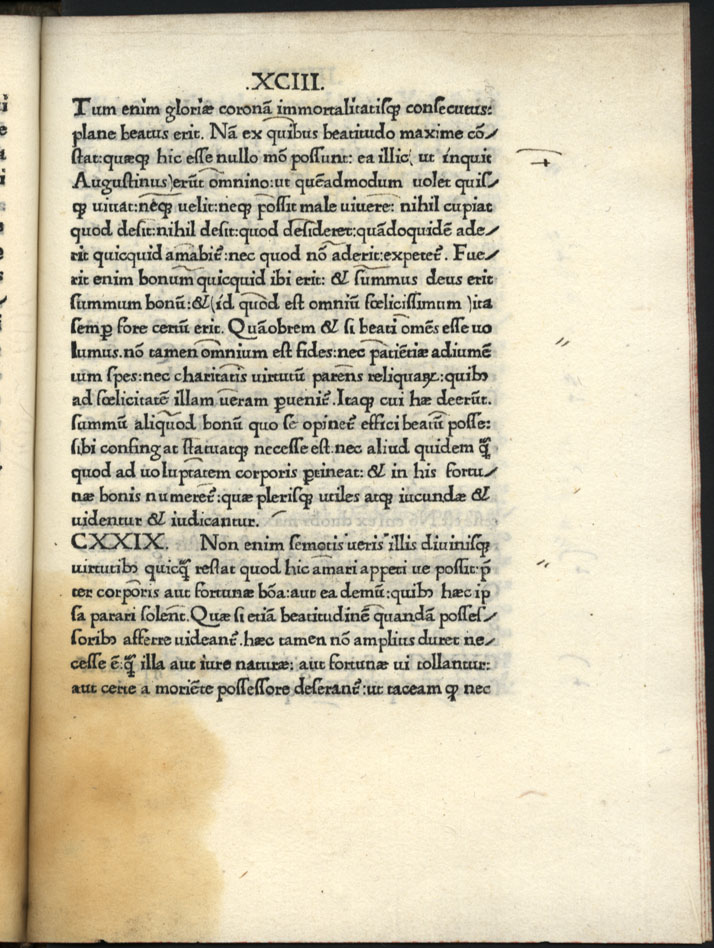 .XCIII.
Tum enim gloriæ coronã immortalitatisqꝫ consecutus:
plane beatus erit. Nã ex quibus beatitudo maxime cõ/
stat:quæqꝫ hic esse nullo mõ possunt: ea illic( ut inquit
Augustinus)erũt omnino:ut quẽadmodum uolet quis/
qꝫ uiuat:neqꝫ uelit:neqꝫ possit male uiuere: nihil cupiat
quod desit:nihil desit:quod desideret:quãdoquidẽ ade/
rit quicquid amabit᷑:nec quod nõ aderit:expetet᷑. Fue/
rit enim bonum quicquid ibi erit: & summus deus erit
summum bonũ:&(id quod est omniũ fœlicissimum )ita
semꝑ fore certũ erit. Quãobrem & si beati omẽs esse uo
lumus.nõ tamen omnium est fides:nec patiẽtiæ adiumẽ
tum spes:nec charitatis uirtutũ parens reliquaꝝ:quibꝰ
ad fœlicitatẽ illam ueram ꝑuenit᷑.Itaqꝫ cui hæ deerũt.
summũ aliquod bonũ quo se opinet᷑ effici beatũ posse:
sibi confingat statuatqꝫ necesse est.nec aliud quidem q̃
quod ad uoluptatem corporis ꝑtineat: & in his fortu/
næ bonis numeret᷑:quæ plerisqꝫ utiles atqꝫ iucundæ &
uidentur & iudicantur.
CXXIX. Non enim semotis ueris illis diuinisqꝫ
uirtutibꝰ quicq̃ restat quod hic amari appeti ue possit:p̃
ter corporis aut fortunæ bõa:aut ea demũ:quibꝰ hæc ip
sa parari solent.Quæ si etiã beatitudinẽ quandã posses/
soribꝰ afferre uideant᷑.hæc tamen nõ amplius duret ne/
cesse ẽ:q̃ illa aut iure naturæ: aut fortunæ ui tollantur:
aut certe a moriẽte possessore deserant᷑:ut taceam qꝫ nec